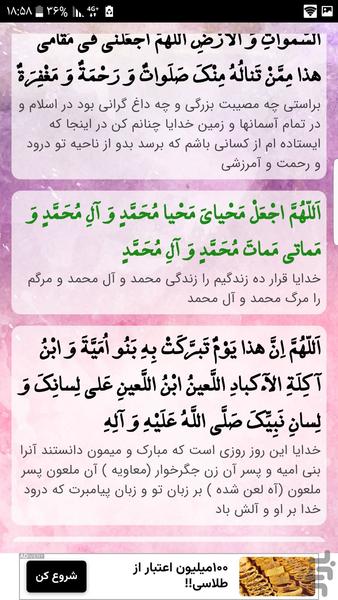 ۱۸:۵۸ ۳۶% 4G+
السَّمواتِ وَ الاَرْضِ اَللّهُمَّ اجْعَلْنى فى مَقامى
هذا مِمَّنْ تَنالُهُ مِنْکَ صَلَواتٌ وَ رَحْمَةٌ وَ مَغْفِرَةٌ
براستی چه مصیبت بزرگی و چه داغ گرانی بود در اسلام و
در تمام آسمانها و زمین خدایا چنانم کن در اینجا که
ایستاده ام از کسانی باشم که برسد بدو از ناحیه تو درود
و رحمت و آمرزشی
اَللّهُمَّ اجْعَلْ مَحْیاىَ مَحْیا مُحَمَّدٍ وَ آلِ مُحَمَّدٍ وَ
مَماتى مَماتَ مُحَمَّدٍ وَ آلِ مُحَمَّدٍ
خدایا قرار ده زندگیم را زندگی محمد و آل محمد و مرگم
را مرگ محمد و آل محمد
اَللّهُمَّ اِنَّ هذا یَوْمٌ تَبرَّکَتْ بِهِ بَنُو اُمَیَّةَ وَ ابْنُ
آکِلَةِ الآکبادِ اللَّعینُ ابْنُ اللَّعینِ عَلى لِسانِکَ وَ
لِسانِ نَبِیِّکَ صَلَّى اللَّهُ عَلَیْهِ وَ آلِهِ
خدایا این روز روزی است که مبارک و میمون دانستند آنرا
بنی امیه و پسر آن زن جگرخوار (معاویه ) آن ملعون پسر
ملعون (آه لعن شده ) بر زبان تو و زبان پیامبرت که درود
خدا بر او و آلش باد
ADIVERY
۱۰۰میلیون اعتبار از
طلاسی!!
شروع کن
بازار